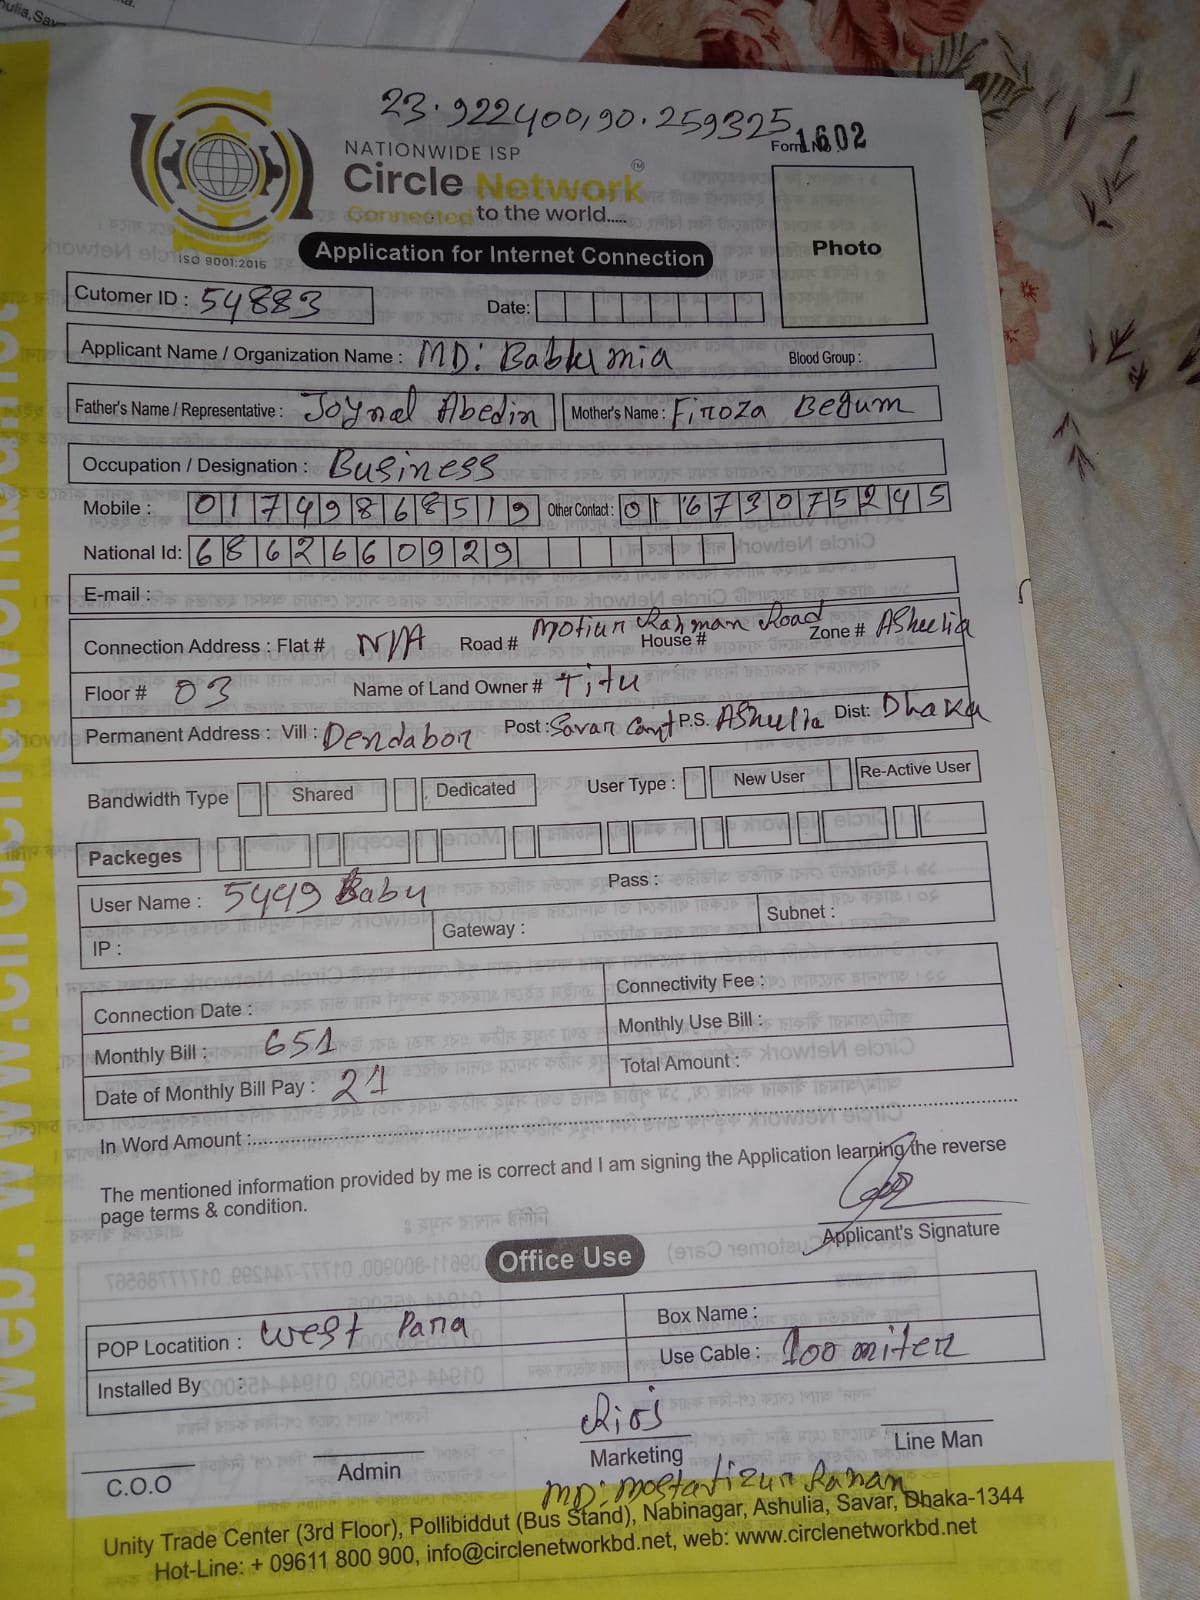 23.922400,90.259325
Form No. 1602
NATIONWIDE ISP
Circle Network
TM
Connected to the world.....
ISO 9001:2015
Application for Internet Connection
Photo
Cutomer ID : 54883
Date:
Applicant Name / Organization Name : MD: Bablu mia
Blood Group :
Father's Name / Representative : Joynal Abedin
Mother's Name : Firoza Begum
Occupation / Designation : Business
Mobile : 01749868519 Other Contact : 01673075245
National Id: 6862660929
E-mail :
Connection Address : Flat # N/A Road # Motiur Rahman Road House # Zone # Asheulia
Floor # 03 Name of Land Owner # Titu
Permanent Address : Vill : Dendabor Post : Savar Cant P.S. Asheulia Dist: Dhaka
Bandwidth Type Shared Dedicated User Type : New User Re-Active User
Packeges
User Name : 5449 Babu Pass :
IP : Gateway : Subnet :
Connection Date : Connectivity Fee :
Monthly Bill : 651 Monthly Use Bill :
Date of Monthly Bill Pay : 21 Total Amount :
In Word Amount :
The mentioned information provided by me is correct and I am signing the Application learning the reverse
page terms & condition.
Applicant's Signature
Office Use
POP Locatition : West Para Box Name :
Installed By : Use Cable : 100 miter
C.O.O Admin Marketing Line Man
MD: Mostafizur Rahman
Unity Trade Center (3rd Floor), Pollibiddut (Bus Stand), Nabinagar, Ashulia, Savar, Dhaka-1344
Hot-Line: + 09611 800 900, info@circlenetworkbd.net, web: www.circlenetworkbd.net
web: www.circlenetworkbd.net